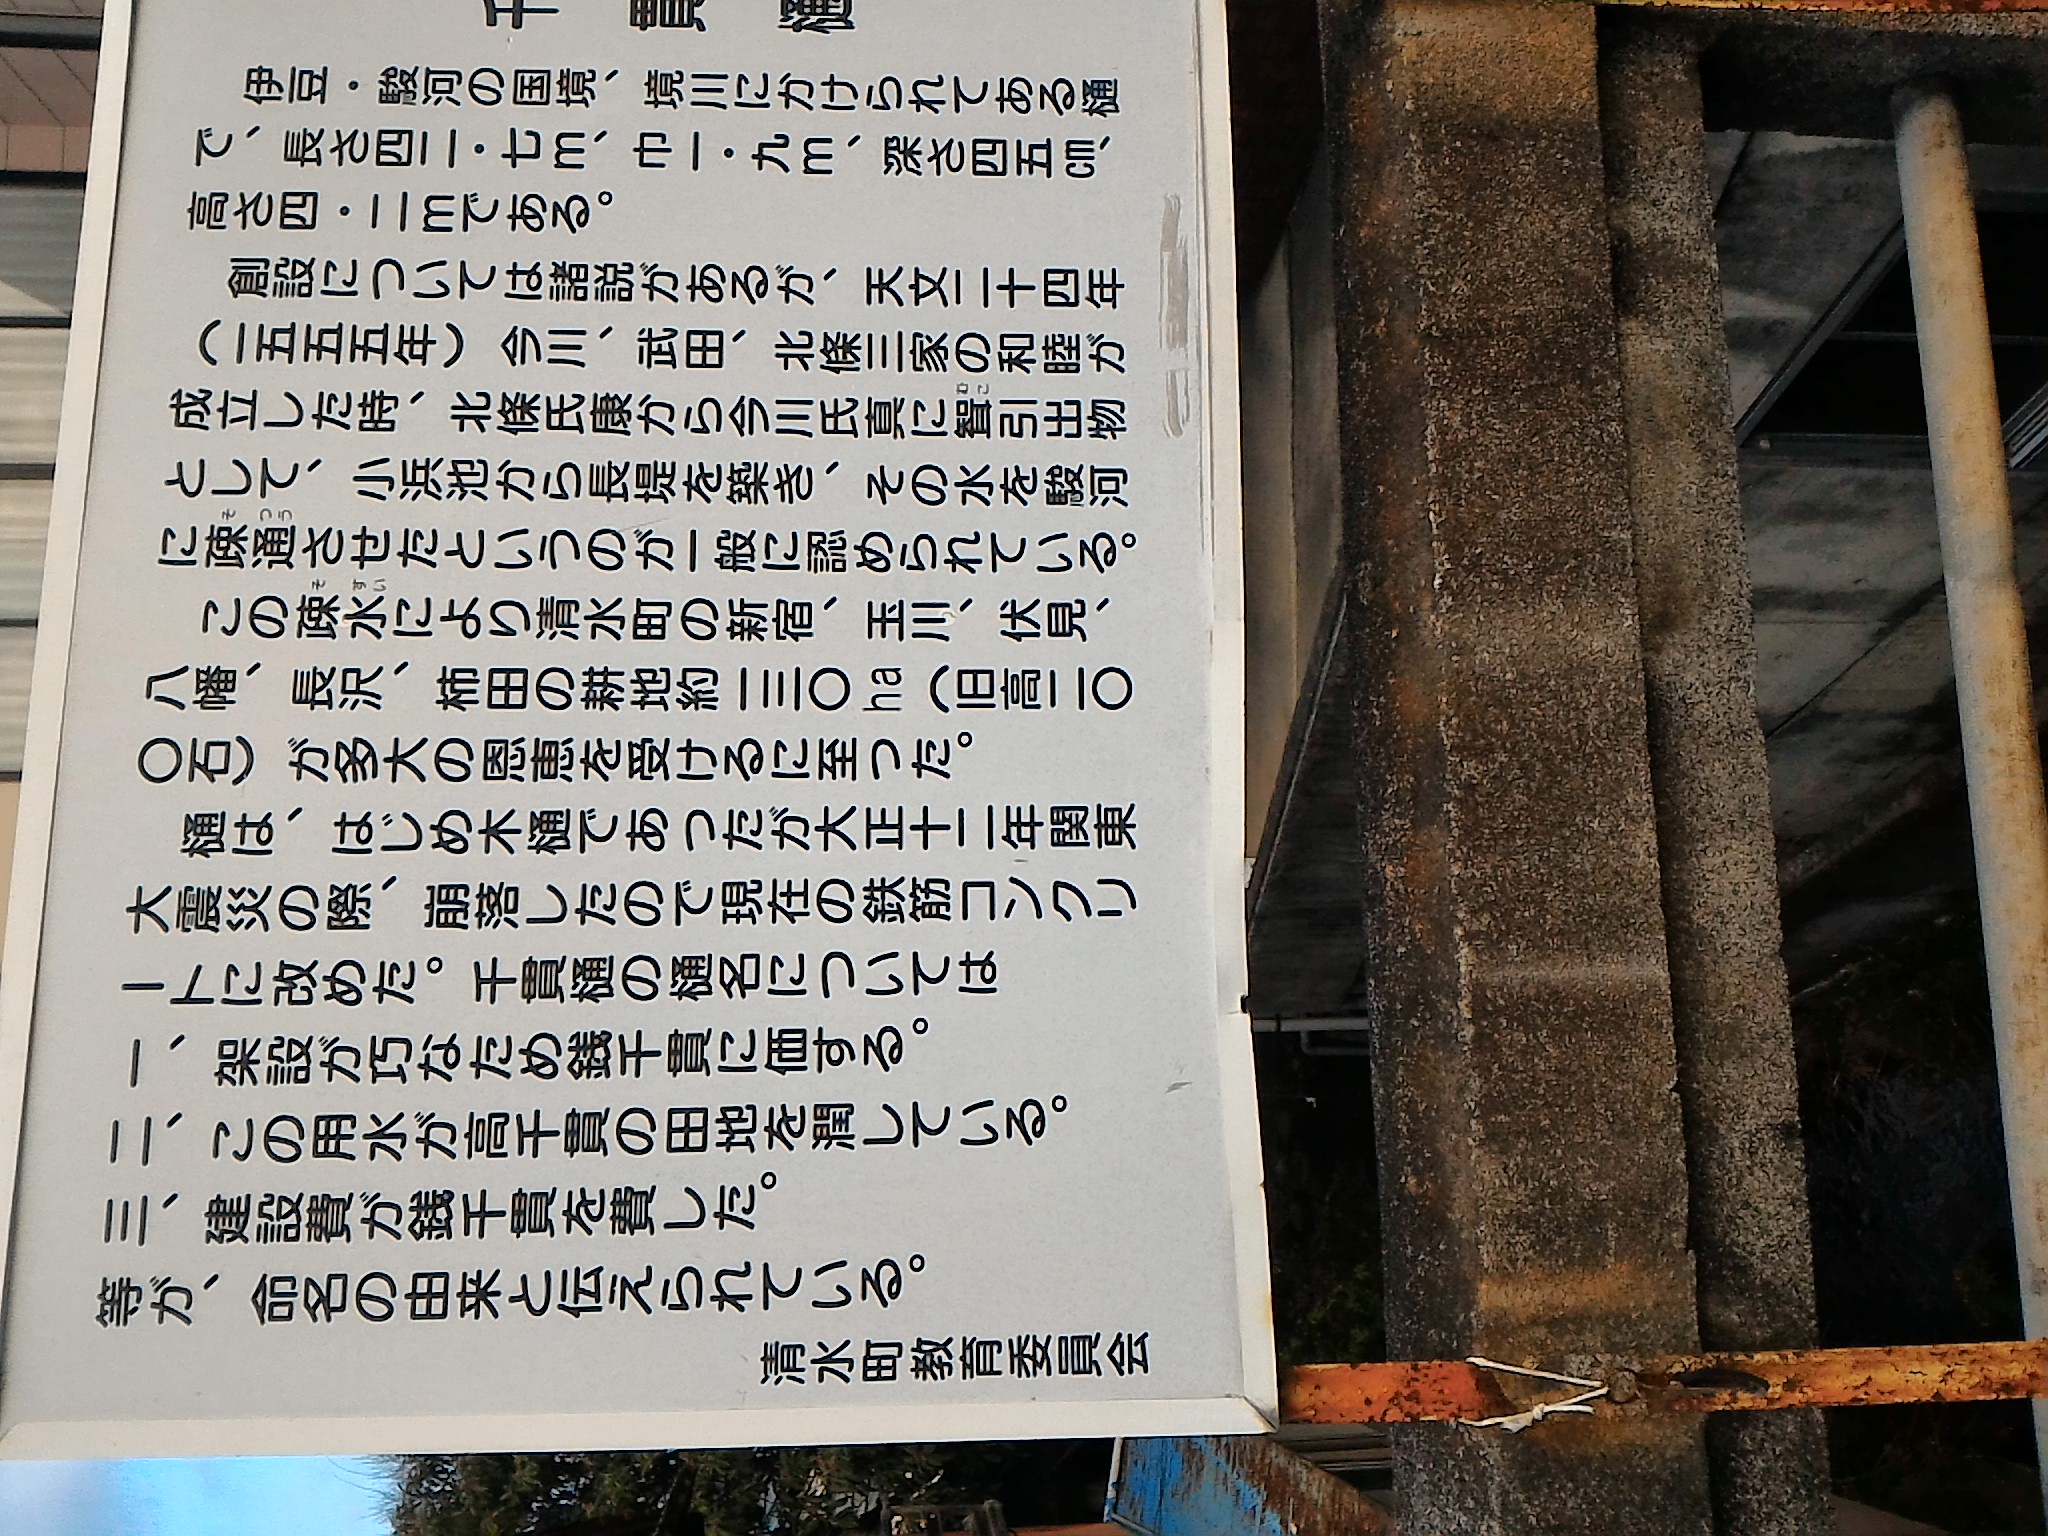 千貫樋
伊豆・駿河の国境、境川にかけられてある樋
で、長さ四二・七m、巾一・九m、深さ四五cm、
高さ四・二mである。
創設については諸説があるが、天文二十四年
（一五五五年）今川、武田、北條三家の和睦が
成立した時、北條氏康から今川氏真に聟引出物
として、小浜池から長堤を築き、その水を駿河
に疎通させたというのが一般に認められている。
この疎水により清水町の新宿、玉川、伏見、
八幡、長沢、柿田の耕地約一三〇ha（旧高二〇
〇石）が多大の恩恵を受けるに至つた。
樋は、はじめ木樋であつたが大正十二年関東
大震災の際、崩落したので現在の鉄筋コンクリ
ートに改めた。千貫樋の樋名については
一、架設が巧なため銭千貫に価する。
二、この用水が高千貫の田地を潤している。
三、建設費が銭千貫を費した。
等が、命名の由来と伝えられている。
清水町教育委員会